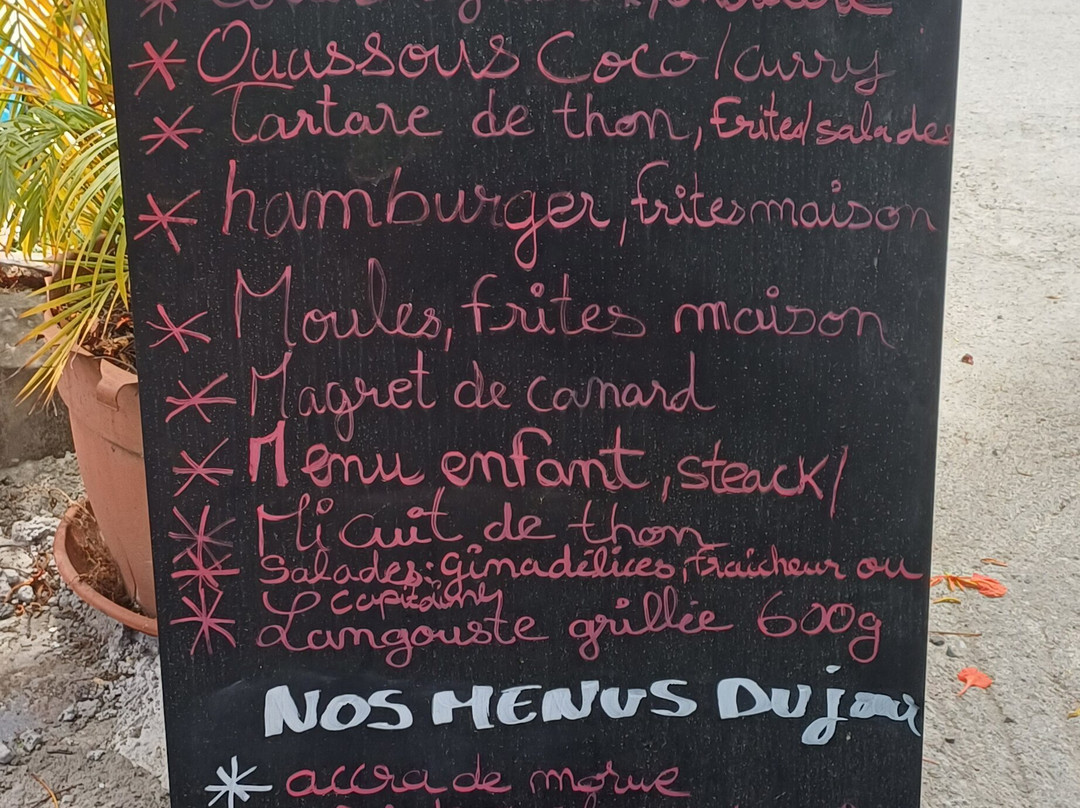 * Ouassous Coco/curry
* Tartare de thon, Frites/salades
* hamburger, frites maison
* Moules, frites maison
* Magret de canard
* Menu enfant, steack/
* Mi cuit de thon
* Salades: Ginadélices, Fraicheur ou
* Langouste grillée 600g
NOS MENUS DU jour
* accra de morue